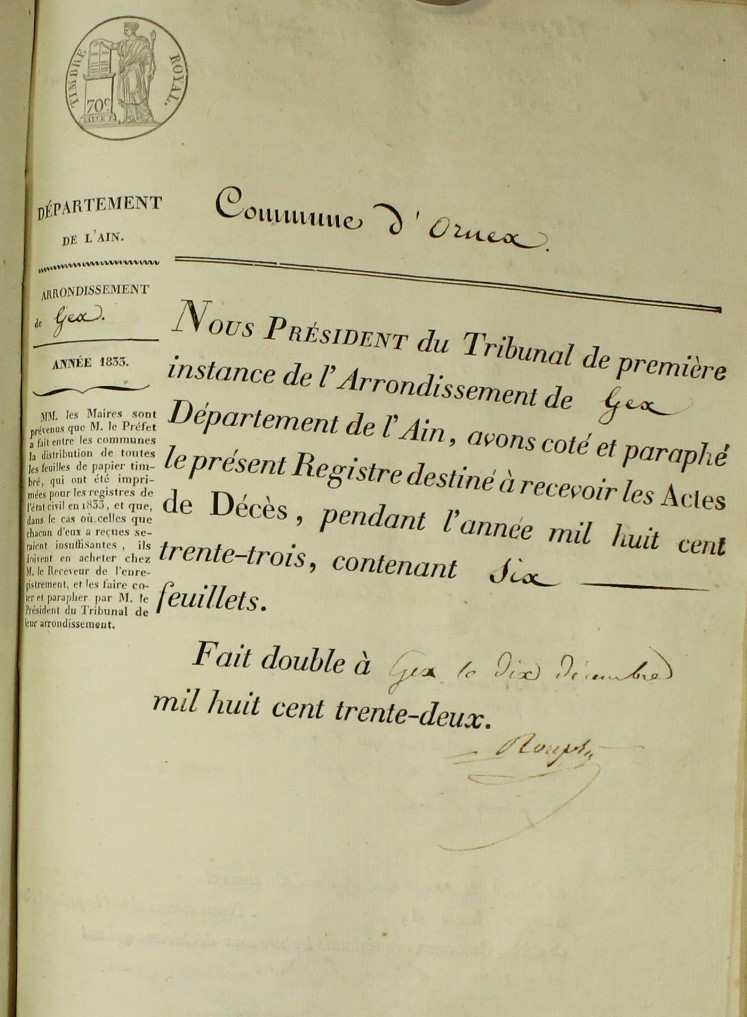 TIMBRE ROYAL.
70c
DÉPARTEMENT
DE L'AIN.
ARRONDISSEMENT
de Gex.
ANNÉE 1833.
MM. les Maires sont
prévenus que M. le Préfet
a fait entre les communes
la distribution de toutes
les feuilles de papier tim-
bré, qui ont été impri-
mées pour les registres de
l'état civil en 1833, et que,
dans le cas où celles que
chacun d'eux a reçues se-
raient insuffisantes, ils
doivent en acheter chez
M. le Receveur de l'enre-
gistrement, et les faire co-
ter et parapher par M. le
Président du Tribunal de
leur arrondissement.
Commune d'Ornex.
NOUS PRÉSIDENT du Tribunal de première
instance de l'Arrondissement de Gex
Département de l'Ain, avons coté et paraphé
le présent Registre destiné à recevoir les Actes
de Décès, pendant l'année mil huit cent
trente-trois, contenant six
feuillets.
Fait double à Gex le dix décembre
mil huit cent trente-deux.